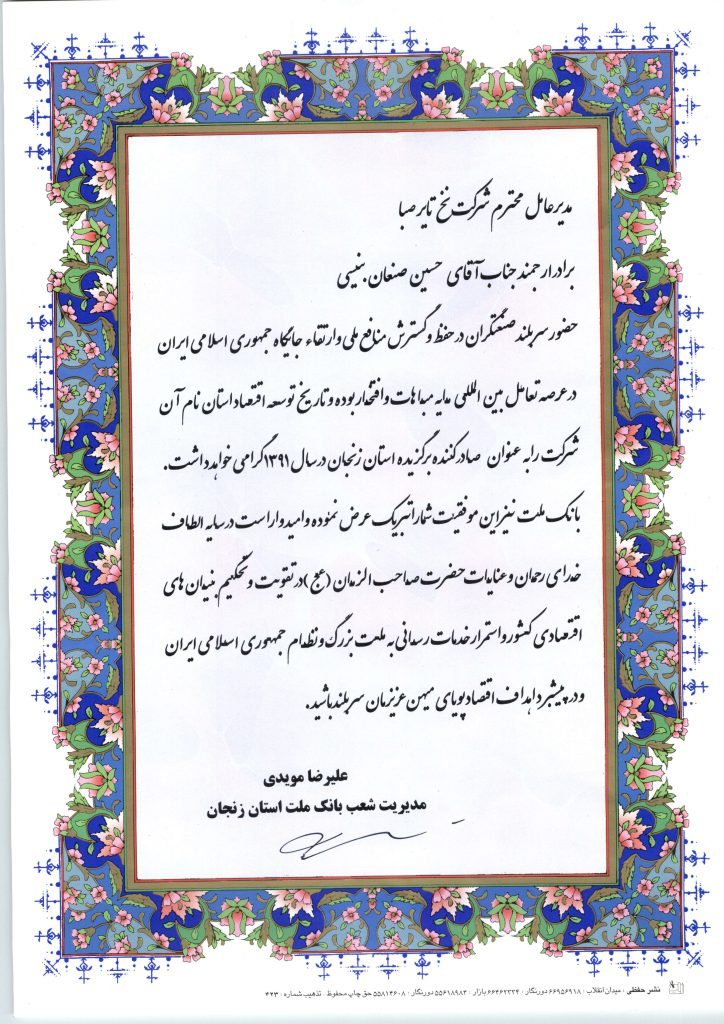 مدیرعامل محترم شرکت نخ تایر صبا
برادر ارجمند جناب آقای حسین صنعان بنیسی
حضور سربلند صنعتگران در حفظ و گسترش منافع ملی و ارتقاء جایگاه جمهوری اسلامی ایران
در عرصه تعامل بین المللی مایه مباهات و افتخار بوده و تاریخ توسعه اقتصاد استان نام آن
شرکت را به عنوان صادرکننده برگزیده استان زنجان در سال ۱۳۹۱ گرامی خواهد داشت.
بانک ملت نیز این موفقیت شما را تبریک عرض نموده و امیدوار است در سایه الطاف
خدای رحمان و عنایات حضرت صاحب الزمان (عج) در تقویت و تحکیم بنیان های
اقتصادی کشور و استمرار خدمات رسانی به ملت بزرگ و نظام جمهوری اسلامی ایران
و در پیشبرد اهداف اقتصاد پویای میهن عزیزمان سربلند باشید.
علیرضا مویدی
مدیریت شعب بانک ملت استان زنجان
نشر حفظی : میدان انقلاب : ۶۶۹۵۶۹۱۸ دورنگار : ۶۶۴۶۲۳۳۴ بازار : ۵۵۶۱۸۹۸۳ دورنگار : ۵۵۸۱۴۶۰۸ حق چاپ محفوظ . تذهیب شماره : ۴۲۳